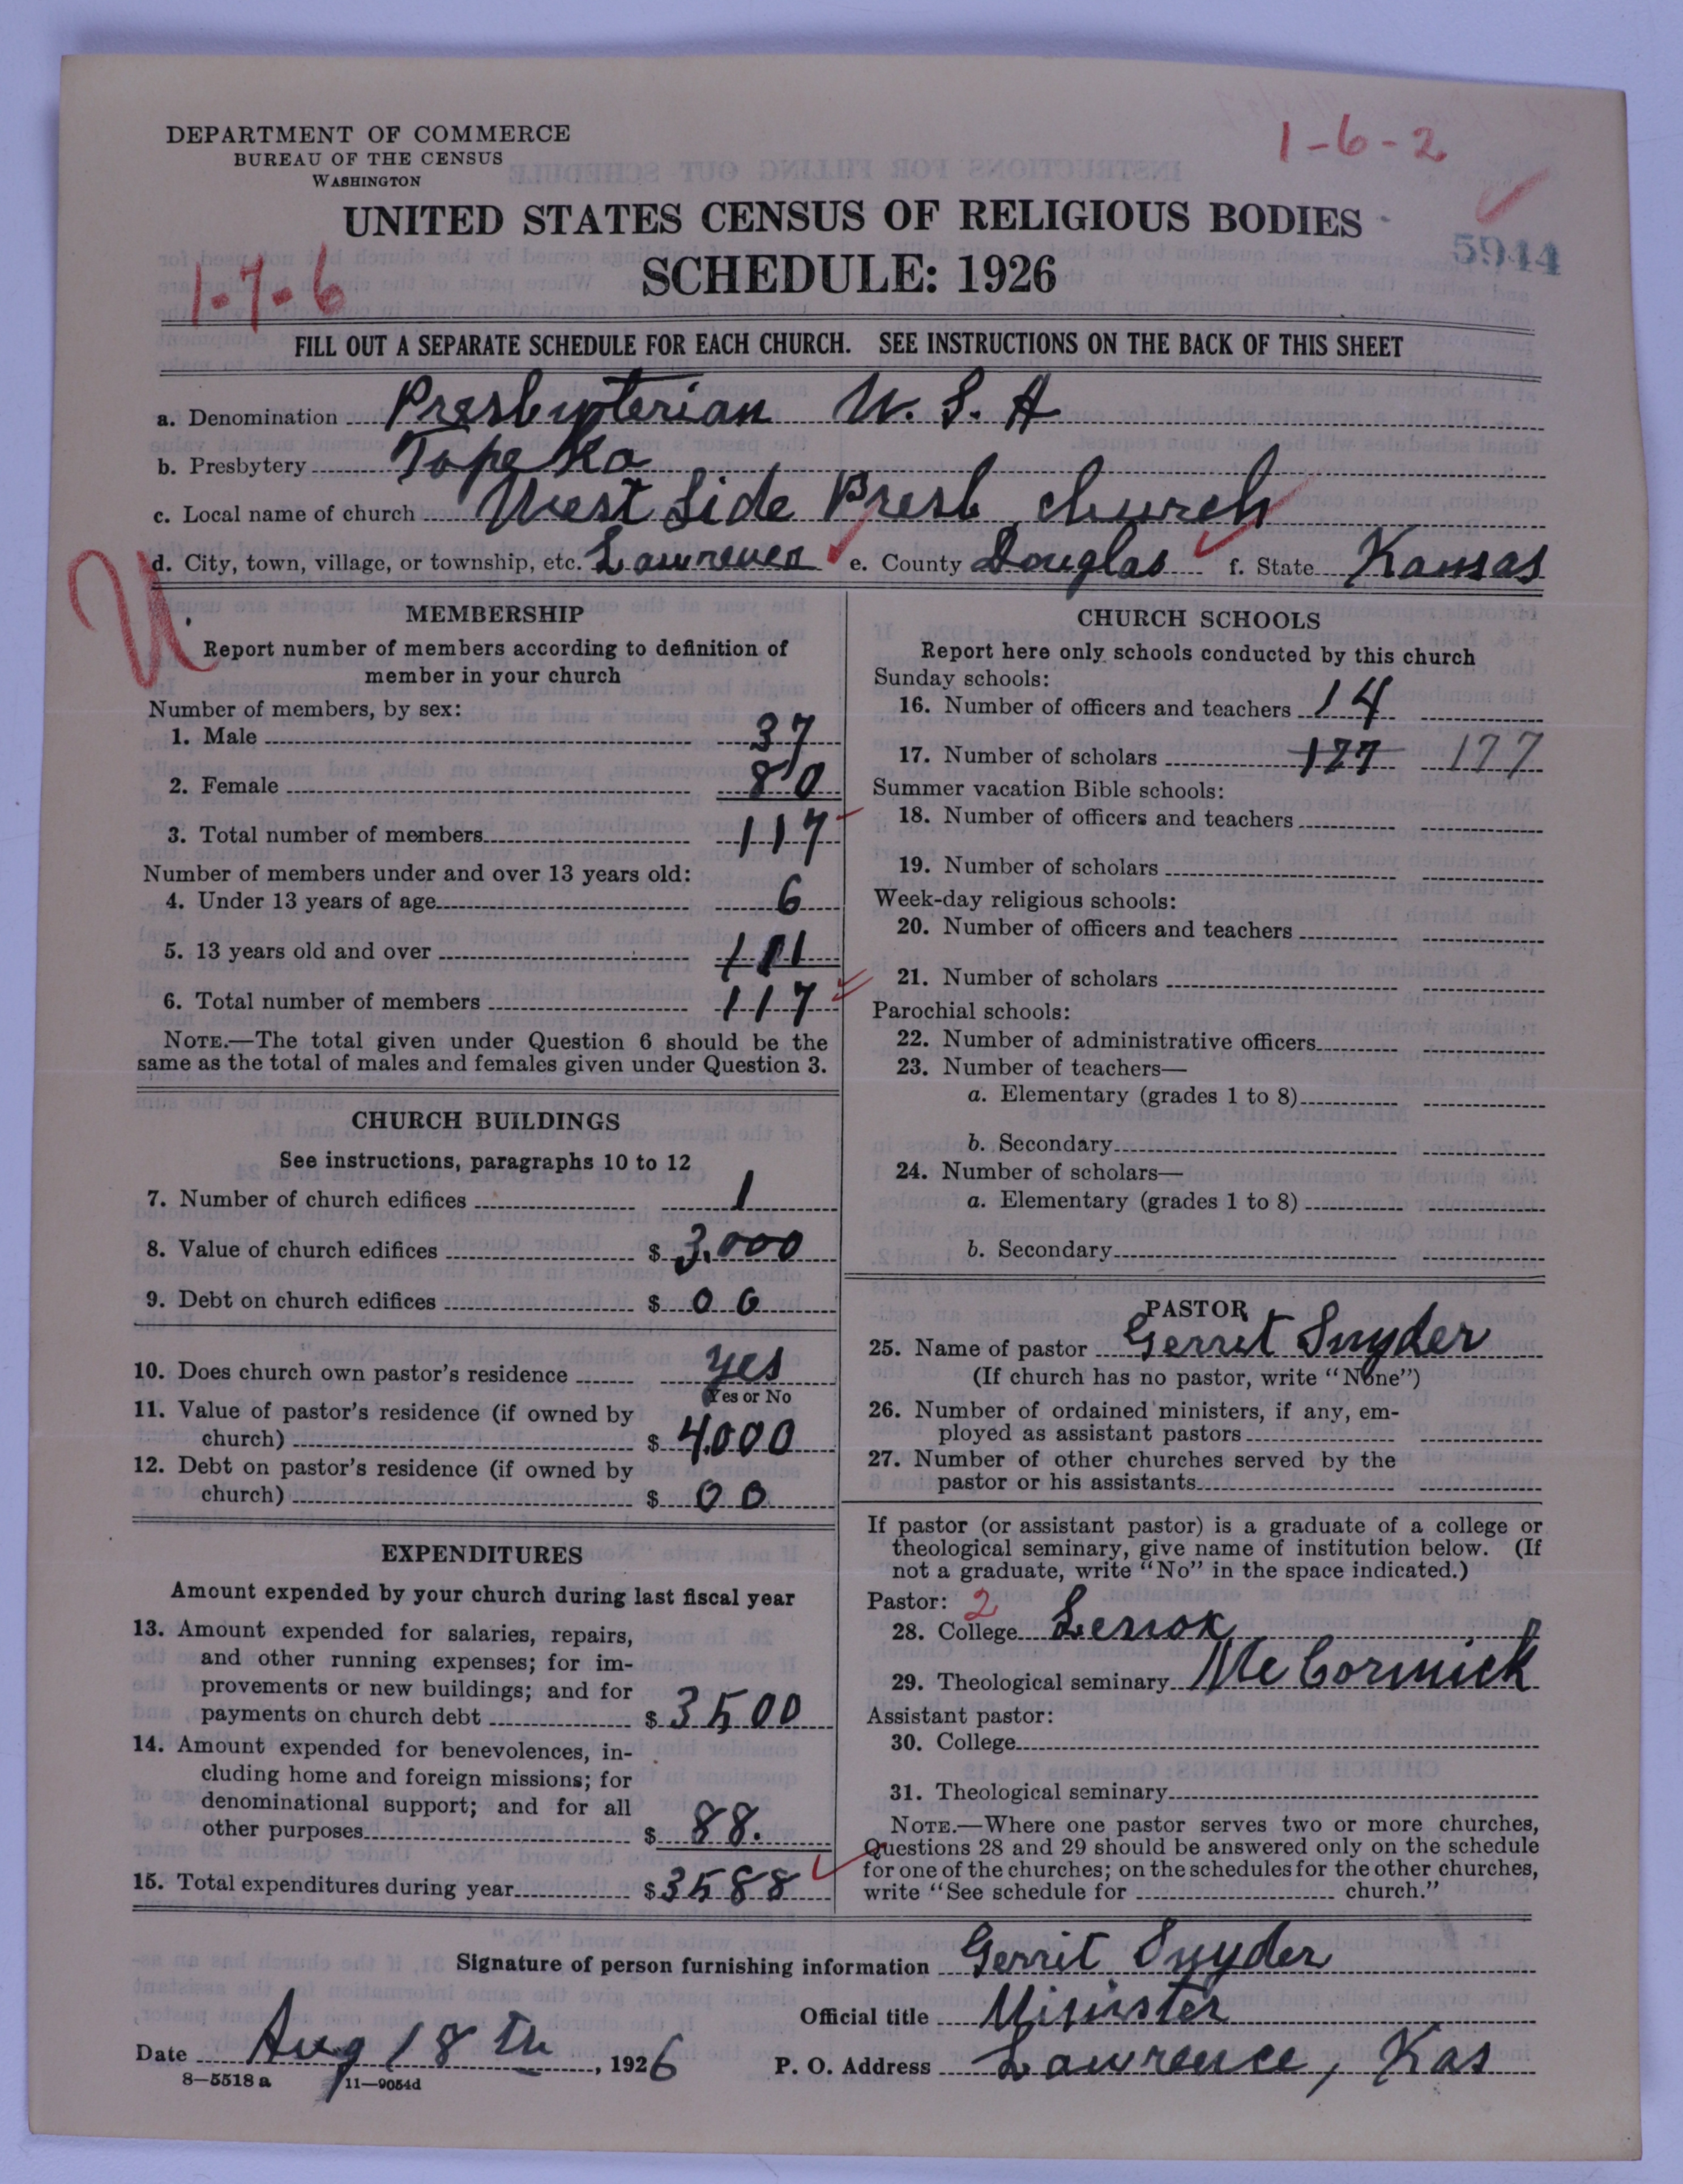 DEPARTMENT OF COMMERCE
BUREAU OF THE CENSUS
WASHINGTON
1-6-2
UNITED STATES CENSUS OF RELIGIOUS BODIES
5944
1-7-6
SCHEDULE: 1926
FILL OUT A SEPARATE SCHEDULE FOR EACH CHURCH. SEE INSTRUCTIONS ON THE BACK OF THIS SHEET
a. Denomination Presbyterian U.S.A
b. Presbytery Topeka
c. Local name of church West Side Presb church
d. City, town, village, or township, etc. Lawrence e. County Douglas f. State Kansas
U
MEMBERSHIP
Report number of members according to definition of
member in your church
Number of members, by sex:
1. Male 37
2. Female 80
3. Total number of members 117
Number of members under and over 13 years old:
4. Under 13 years of age 6
5. 13 years old and over 111
6. Total number of members 117
NOTE.—The total given under Question 6 should be the
same as the total of males and females given under Question 3.
CHURCH BUILDINGS
See instructions, paragraphs 10 to 12
7. Number of church edifices 1
8. Value of church edifices $ 3,000
9. Debt on church edifices $ 00
10. Does church own pastor's residence yes
Yes or No
11. Value of pastor's residence (if owned by
church) $ 4,000
12. Debt on pastor's residence (if owned by
church) $ 00
EXPENDITURES
Amount expended by your church during last fiscal year
13. Amount expended for salaries, repairs,
and other running expenses; for im-
provements or new buildings; and for
payments on church debt $ 3500
14. Amount expended for benevolences, in-
cluding home and foreign missions; for
denominational support; and for all
other purposes $ 88.
15. Total expenditures during year $ 3588
CHURCH SCHOOLS
Report here only schools conducted by this church
Sunday schools:
16. Number of officers and teachers 14
17. Number of scholars 177 177
Summer vacation Bible schools:
18. Number of officers and teachers
19. Number of scholars
Week-day religious schools:
20. Number of officers and teachers
21. Number of scholars
Parochial schools:
22. Number of administrative officers
23. Number of teachers—
a. Elementary (grades 1 to 8)
b. Secondary
24. Number of scholars—
a. Elementary (grades 1 to 8)
b. Secondary
PASTOR
25. Name of pastor Gerrit Snyder
(If church has no pastor, write "None")
26. Number of ordained ministers, if any, em-
ployed as assistant pastors
27. Number of other churches served by the
pastor or his assistants
If pastor (or assistant pastor) is a graduate of a college or
theological seminary, give name of institution below. (If
not a graduate, write "No" in the space indicated.)
Pastor: 2
28. College Lenox
29. Theological seminary McCormick
Assistant pastor:
30. College
31. Theological seminary
NOTE.—Where one pastor serves two or more churches,
Questions 28 and 29 should be answered only on the schedule
for one of the churches; on the schedules for the other churches,
write "See schedule for church."
Signature of person furnishing information Gerrit Snyder
Official title Minister
Date Aug 18th, 1926 P. O. Address Lawrence, Kas
8—5518 a 11—9054d